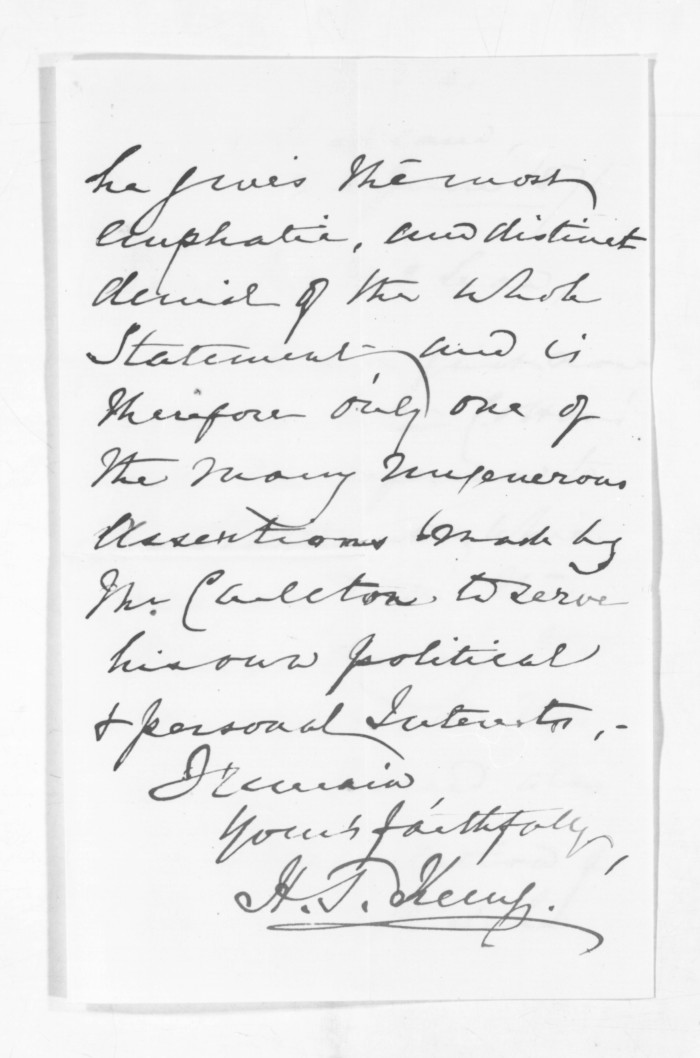 he gives the most
emphatic, and distinct
denial of the whole
Statement and is
therefore only one of
the many ungenerous
Assertions made by
Mr. Carleton to serve
his own political
& personal Interests,-
I remain
Yours faithfully,
H. T. Kemp.